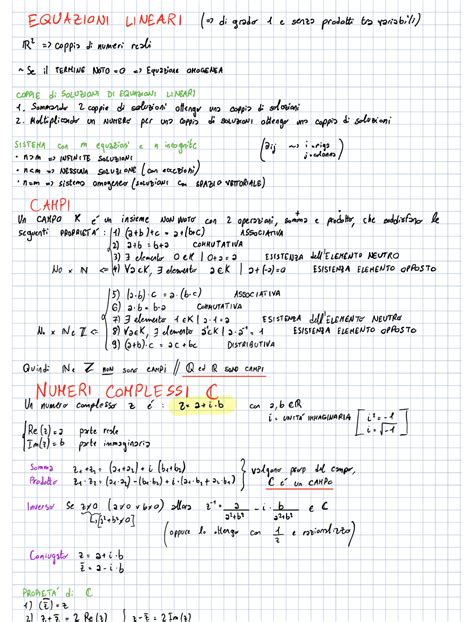 EQUAZIONI LINEARI (=> di grado 1 e senza prodotti tra variabili)
ℝ² => coppia di numeri reali
~ Se il TERMINE NOTO = 0 => Equazione OMOGENEA
COPPIE di SOLUZIONI DI EQUAZIONI LINEARI
1. Sommando 2 coppie di soluzioni ottengo una coppia di soluzioni
2. Moltiplicando un NUMERO per una coppia di soluzioni ottengo una coppia di soluzioni
SISTEMA con m equazioni e n incognite
(aij ~> i = riga
j = colonna)
• n>m => INFINITE SOLUZIONI
• n<m => NESSUNA SOLUZIONE (con eccezioni)
• n=m => sistema omogeneo (soluzioni con SPAZIO VETTORIALE)
CAMPI
Un CAMPO K è un insieme NON VUOTO con 2 operazioni, somma e prodotto, che soddisfano le
seguenti PROPRIETÀ: 1) (a+b)+c = a+(b+c) ASSOCIATIVA
2) a+b = b+a COMMUTATIVA
3) ∃ elemento 0∈K | 0+a = a ESISTENZA dell'ELEMENTO NEUTRO
No x ℕ <= 4) ∀a∈K, ∃ elemento -a∈K | a+(-a)=0 ESISTENZA ELEMENTO OPPOSTO
5) (a·b)·c = a·(b·c) ASSOCIATIVA
6) a·b = b·a COMMUTATIVA
7) ∃ elemento 1∈K | 1·a = a ESISTENZA dell'ELEMENTO NEUTRO
No x ℕ e ℤ <= 8) ∀a∈K, ∃ elemento a⁻¹∈K | a·a⁻¹ = 1 ESISTENZA ELEMENTO OPPOSTO
9) (a+b)·c = ac+bc DISTRIBUTIVA
Quindi ℕ e ℤ non sono CAMPI // ℚ ed ℝ SONO CAMPI
NUMERI COMPLESSI ℂ
Un numero complesso z è: z = a+i·b con a,b∈ℝ
i = UNITÀ IMMAGINARIA [i² = -1
i = √-1]
Re(z) = a parte reale
Im(z) = b parte immaginaria
Somma z₁+z₂ = (a₁+a₂)+i(b₁+b₂)
Prodotto z₁·z₂ = (a₁·a₂)-(b₁·b₂)+i·(a₁·b₂+a₂·b₁)
valgono prop. del campo,
ℂ è un CAMPO
Inverso Se z≠0 (a≠0 ∨ b≠0) allora z⁻¹ = a/(a²+b²) - i·b/(a²+b²) ∈ ℂ
[a²+b²≠0]
(oppure lo ottengo con 1/z e razionalizzo)
Coniugato z = a+i·b
z̄ = a-i·b
PROPRIETÀ di ℂ
1) (z̄) = z
2) z+z̄ = 2 Re(z) z-z̄ = 2 Im(z)